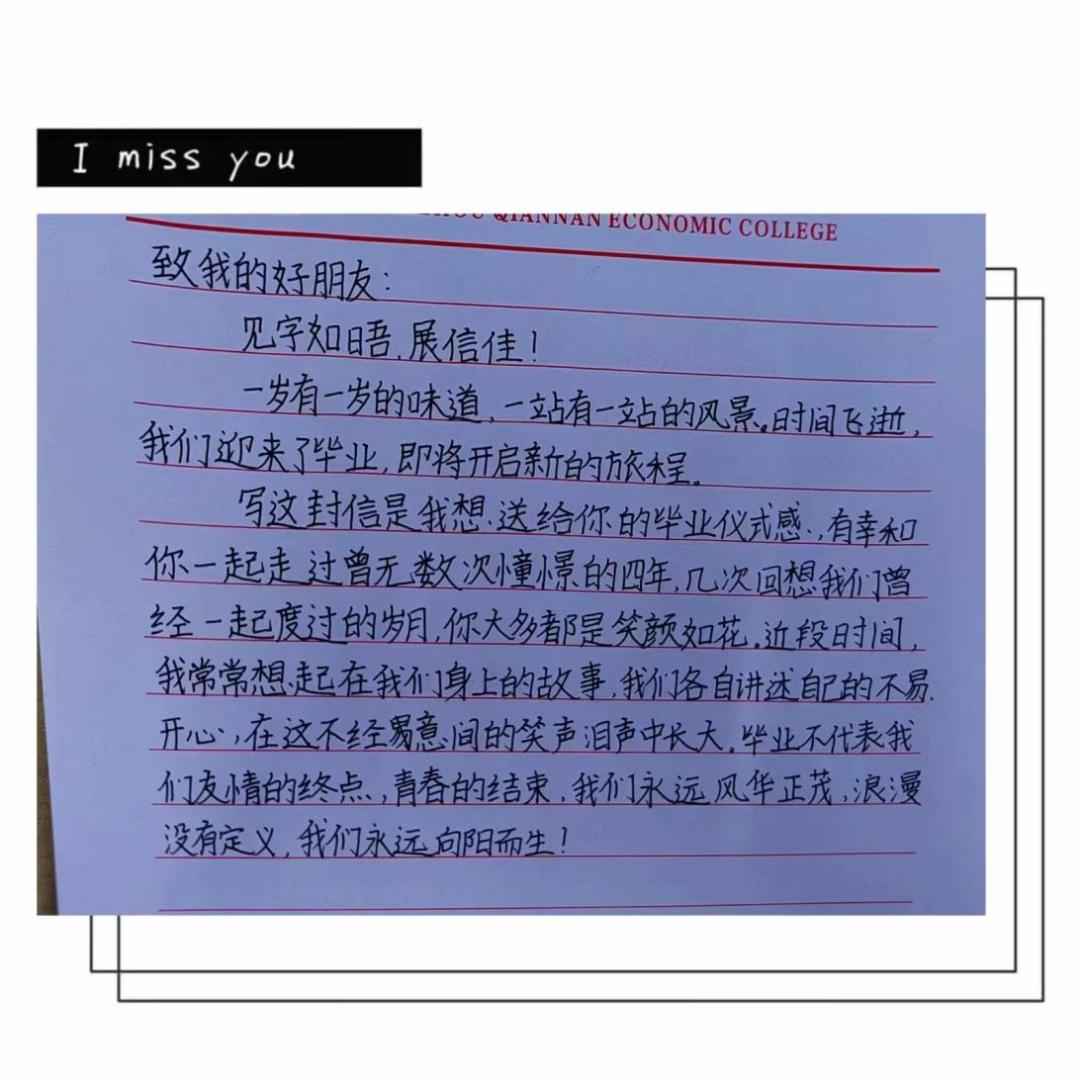 I miss you
QIANNAN ECONOMIC COLLEGE
致我的好朋友：
见字如晤，展信佳！
一岁有一岁的味道，一站有一站的风景。时间飞逝，
我们迎来了毕业，即将开启新的旅程。
写这封信是我想送给你的毕业仪式感，有幸和
你一起走过曾无数次憧憬的四年，几次回想我们曾
经一起度过的岁月，你大多都是笑颜如花。近段时间，
我常常想起在我们身上的故事，我们各自讲述自己的不易、
开心，在这不经易意间的笑声泪声中长大。毕业不代表我
们友情的终点，青春的结束，我们永远风华正茂，浪漫
没有定义，我们永远向阳而生！